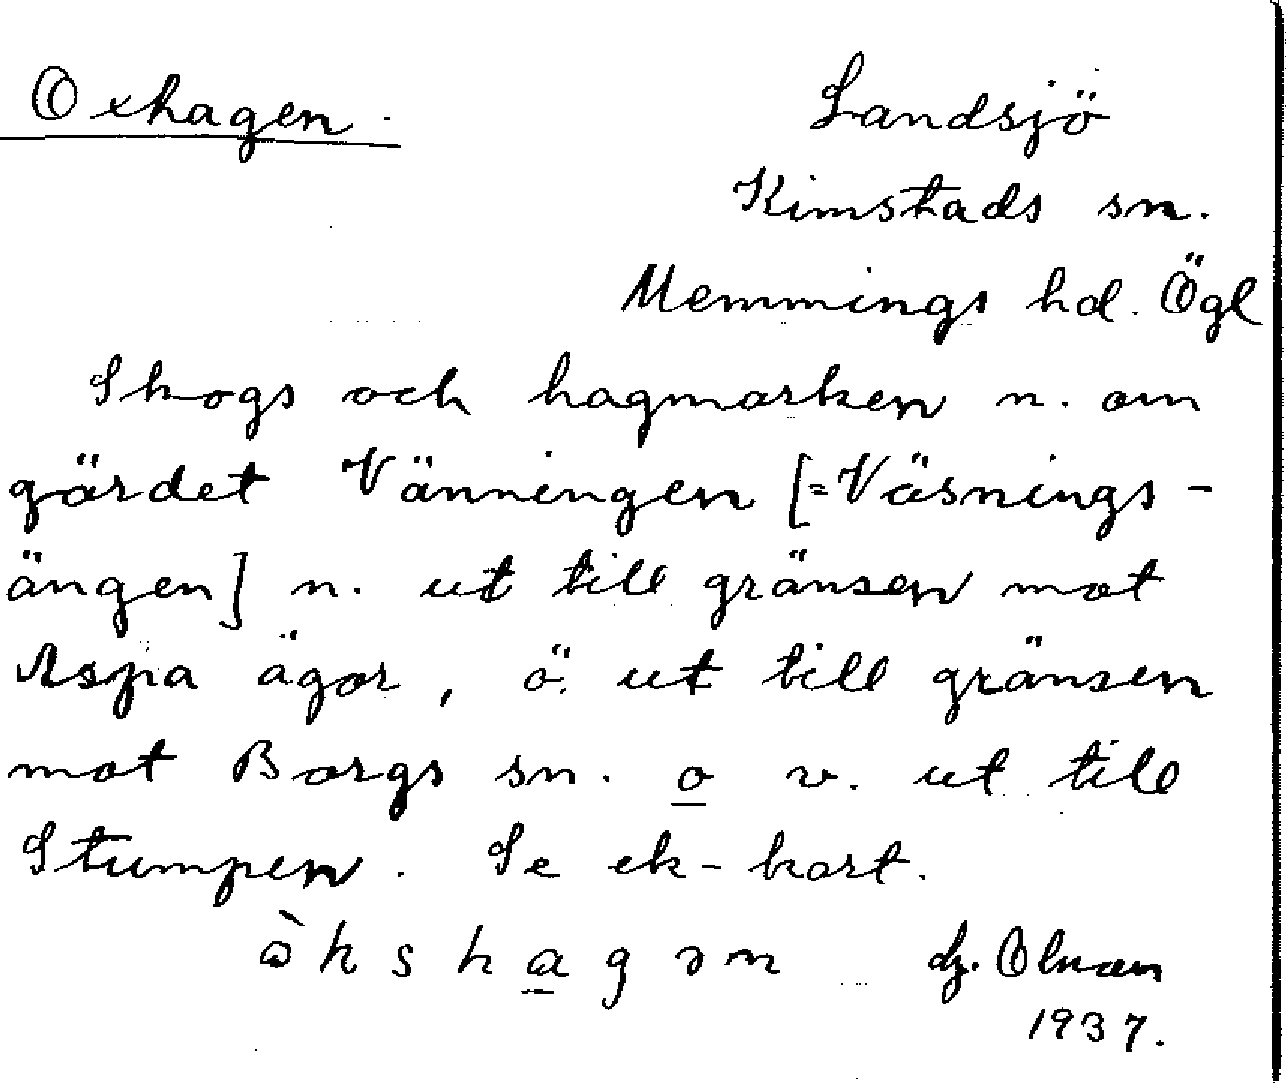 Oxhagen.
Landsjö
Kimstads sn.
Memmings hd. Ögl
Skogs och hagmarken n. om
gärdet Vänningen [=Väsnings-
ängen] n. ut till gränsen mot
Aspa ägor, ö. ut till gränsen
mot Borgs sn. o v. ut till
Stumpen. Se ek-kart.
1937.